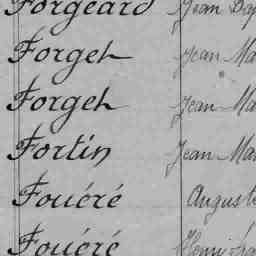 Forgeard Jean Bap
Forget Jean Ma
Forget Jean Ma
Fortin Jean Mar
Fouéré Auguste
Fouéré Henri